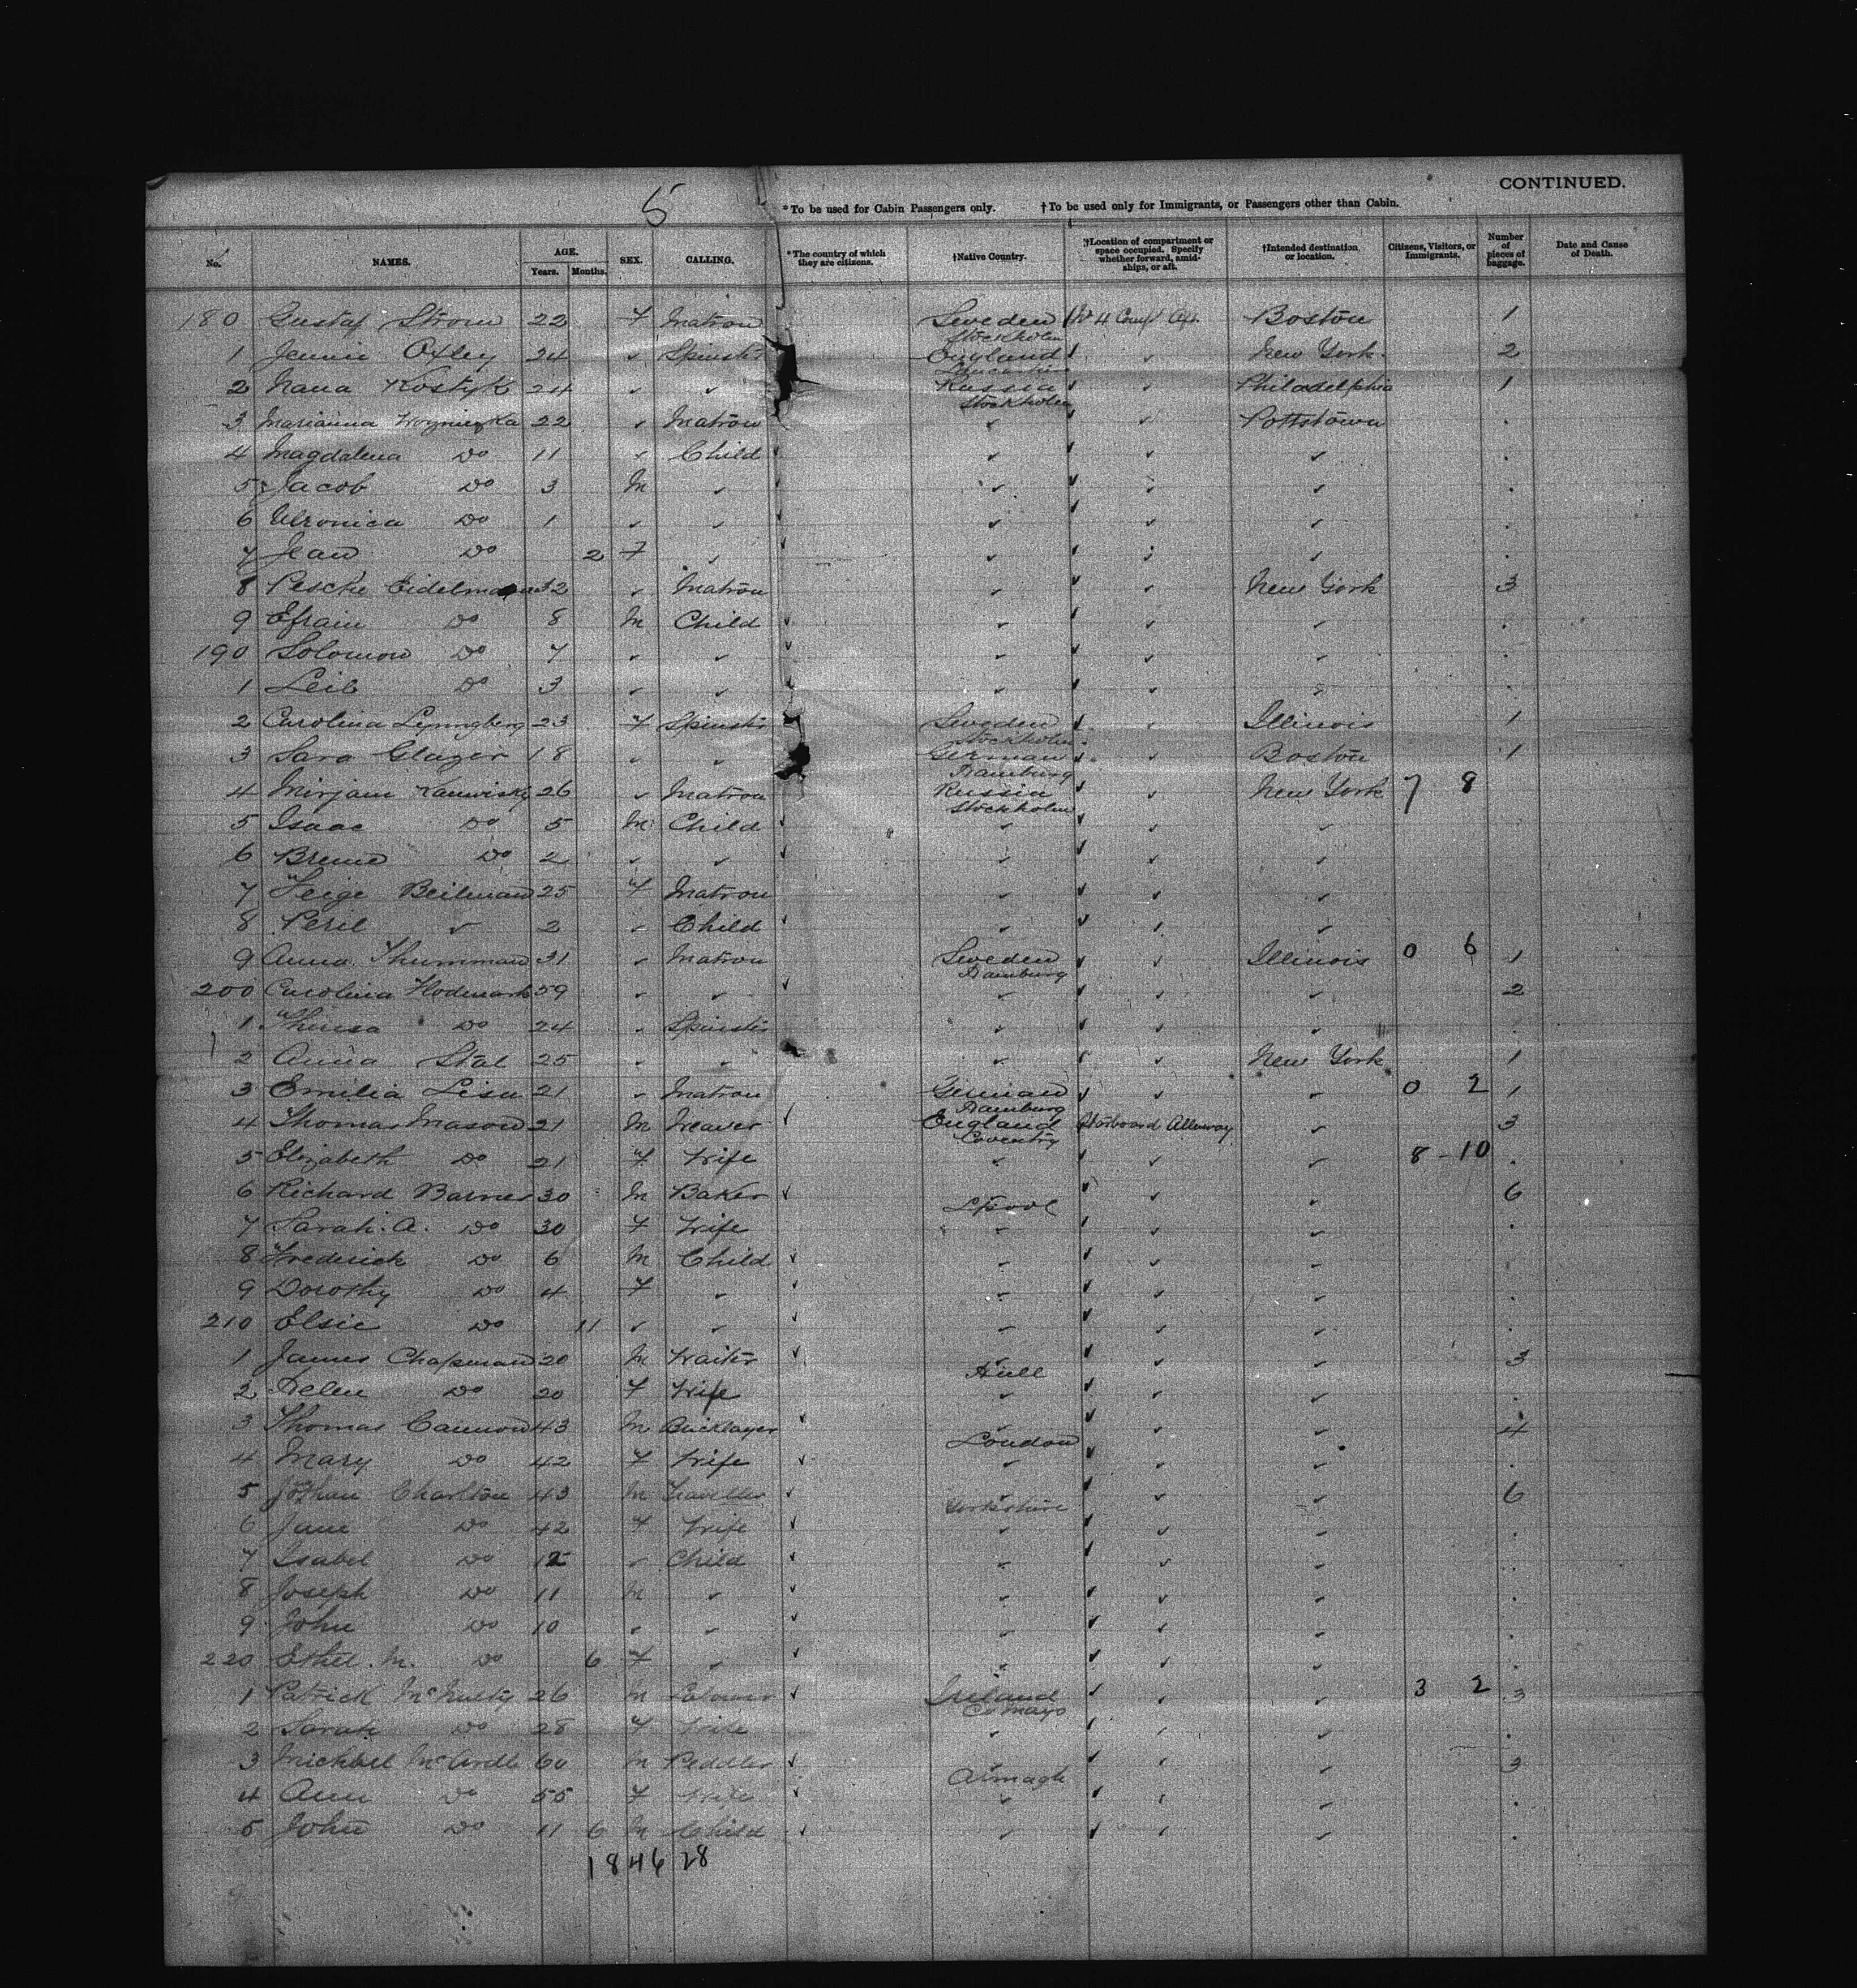 5
CONTINUED.
*To be used for Cabin Passengers only. †To be used only for Immigrants, or Passengers other than Cabin.
No. NAMES. AGE. Years. Months. SEX. CALLING. *The country of which they are citizens. †Native Country. †Location of compartment or space occupied. Specify whether forward, amidships, or aft. †Intended destination or location. Citizens, Visitors, or Immigrants. Number of pieces of baggage. Date and Cause of Death.
180 Gustaf Strom 22 F Matron Sweden Stockholm No 4 Compt Aft. Boston 1
1 Jennie Oxley 24 ✓ Spinster England Lancashire ✓ New York 2
2 Nana Kostyk 24 ✓ ✓ Russia Stockholm ✓ Philadelphia 1
3 Marianna 22 ✓ Matron ✓ ✓ Pottstown .
4 Magdalena Do 11 ✓ Child ✓ ✓ ✓ .
5 Jacob Do 3 M ✓ ✓ ✓ ✓ .
6 Veronica Do 1 ✓ ✓ ✓ ✓ ✓ .
7 Jean Do 2 F ✓ ✓ ✓ ✓ .
8 Pesche Eidelman 32 ✓ Matron ✓ ✓ New York 3
9 Efraim Do 8 M Child ✓ ✓ ✓ .
190 Solomon Do 7 ✓ ✓ ✓ ✓ ✓ .
1 Leib Do 3 ✓ ✓ ✓ ✓ ✓ .
2 Carolina 23 F Spinster Sweden Stockholm ✓ Illinois 1
3 Sara Glazer 18 ✓ ✓ German Hamburg ✓ Boston 1
4 Mirjam 26 ✓ Matron Russia Stockholm ✓ New York 7 8
5 Isaac Do 5 M Child ✓ ✓ ✓
6 Do 2 ✓ ✓ ✓ ✓ ✓
7 Feige Beilman 25 F Matron ✓ ✓ ✓
8 Peril ✓ 2 ✓ Child ✓ ✓ ✓
9 Anna Thumman 31 ✓ Matron Sweden Hamburg ✓ Illinois 0 6 1
200 Carolina 59 ✓ ✓ ✓ ✓ ✓ 2
1 Theresa Do 24 ✓ Spinster ✓ ✓ ✓ .
2 Anna Stal 25 ✓ ✓ ✓ ✓ New York 1
3 Emilia Lisa 21 ✓ Matron German Hamburg ✓ ✓ 0 2 1
4 Thomas Mason 21 M Weaver England Coventry Starboard Alleway ✓ 3
5 Elizabeth Do 21 F Wife ✓ ✓ ✓ 8 - 10 .
6 Richard Barnes 30 M Baker ✓ L'pool ✓ ✓ 6
7 Sarah. A. Do 30 F Wife ✓ ✓ ✓ .
8 Frederick Do 6 M Child ✓ ✓ ✓ .
9 Dorothy Do 4 F ✓ ✓ ✓ ✓ .
210 Elsie Do 11 ✓ ✓ ✓ ✓ ✓ .
1 James Chapman 20 M Waiter ✓ Hull ✓ ✓ 3
2 Helen Do 20 F Wife ✓ ✓ ✓ .
3 Thomas Cannon 43 M Bricklayer ✓ London ✓ ✓ 4
4 Mary Do 42 F Wife ✓ ✓ ✓ .
5 Charlton 43 M Traveller ✓ Yorkshire ✓ ✓ 6
6 Jane Do 42 F Wife ✓ ✓ ✓ .
7 Isabel Do 12 ✓ Child ✓ ✓ ✓ .
8 Joseph Do 11 M ✓ ✓ ✓ ✓ .
9 John Do 10 ✓ ✓ ✓ ✓ ✓ .
220 Ethel. M. Do 6 F ✓ ✓ ✓ ✓ .
1 Patrick McNulty 26 M Labourer Ireland Co Mayo ✓ ✓ 3 2 3
2 Sarah Do 28 F Wife ✓ ✓ ✓ .
3 Michael McArdle 60 M Peddler ✓ Armagh ✓ ✓ 3
4 Ann Do 55 F Wife ✓ ✓ ✓ .
5 John Do 11 6 M Child ✓ ✓ ✓ .
184628